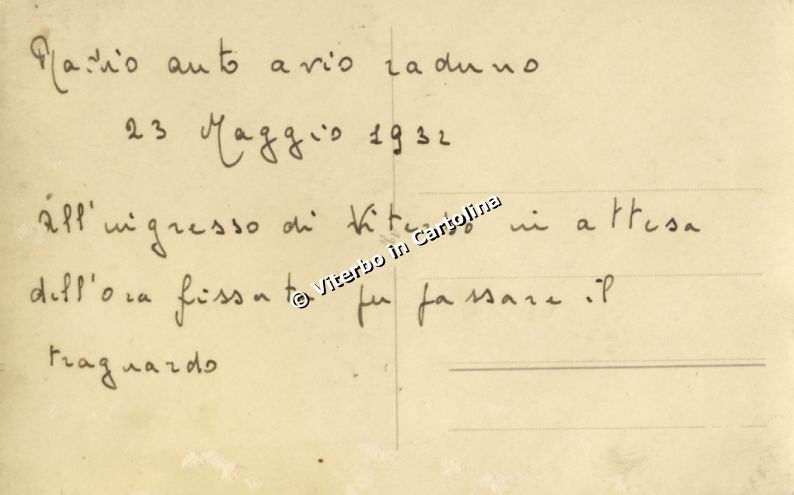 auto avio raduno
23 Maggio 1932
All'ingresso di Viterbo in attesa
dell'ora fissata per passare il
traguardo
© Viterbo in Cartolina